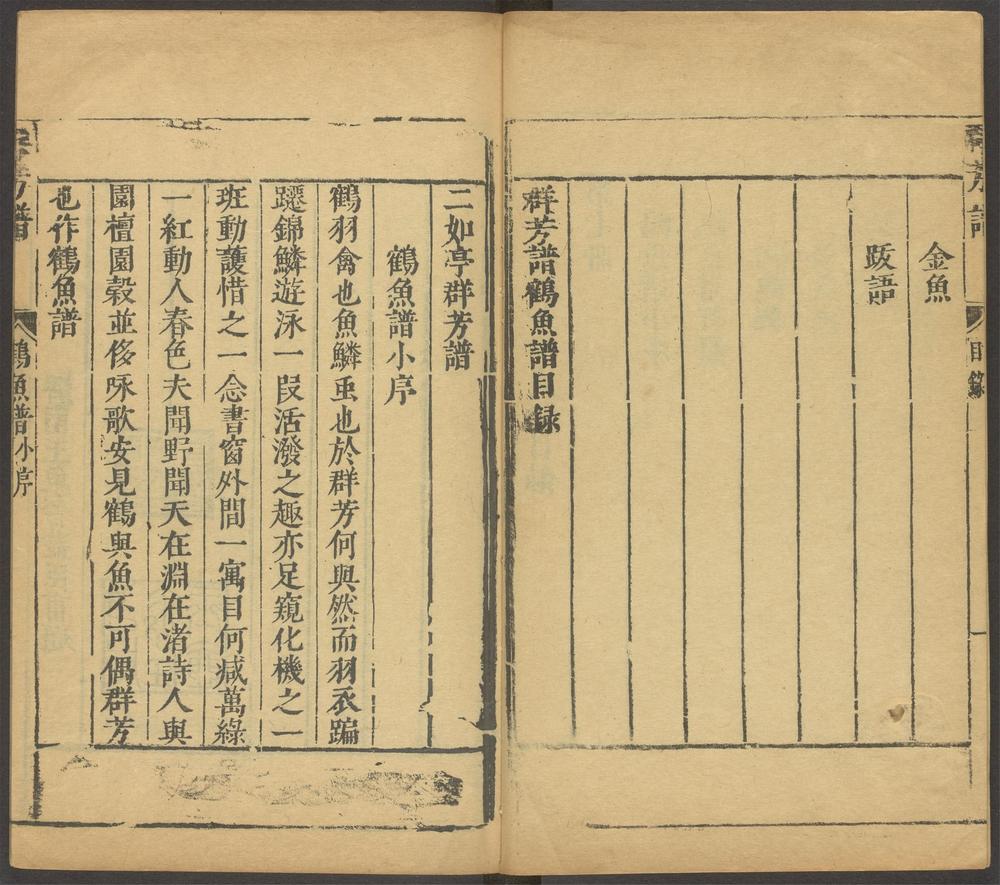 金魚
跋語
群芳譜鶴魚譜目録
目錄
一
二如亭群芳譜
鶴魚譜小序
鶴羽禽也魚鱗虫也於群芳何與然而羽衣蹁
躚錦鱗遊泳一叚活潑之趣亦足窺化機之一
班動護惜之一念書窗外間一寓目何减萬綠
一紅動人春色夫聞野聞天在淵在渚詩人與
園檀園榖並侈咏歌安見鶴與魚不可偶群芳
也作鶴魚譜
鶴魚譜小序